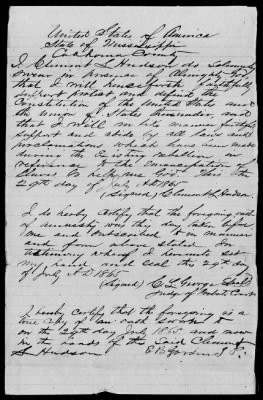 United States of America
State of Mississippi
Coahoma County
I Clement L Hudson do Solemnly
Swear in presence of Almighty God
that I will henceforth faithfully
support protect and defend the
Constitution of the United States and
the Union of States thereunder, and
that I will in like manner faithfully
support and abide by all laws and
proclamations which have been made
during the existing rebellion in
reference to the Emancipation of
Slaves So help me God. This the
29th day of July AD 1865
(Signed) Clement L Hudson
I do hereby certify that the foregoing oath
of amnesty was this day taken before
me and subscribed to in manner
and form above stated In
testimony whereof I hereunto set
my hand and seal this 29th day
of July A D 1865
(Signed) C L George
Judge of Probate Court
I hereby certify that the foregoing is a
true copy of an oath sworn to
on the 29th day July 1865 and now
in the hands of the Said Clement
Hudson